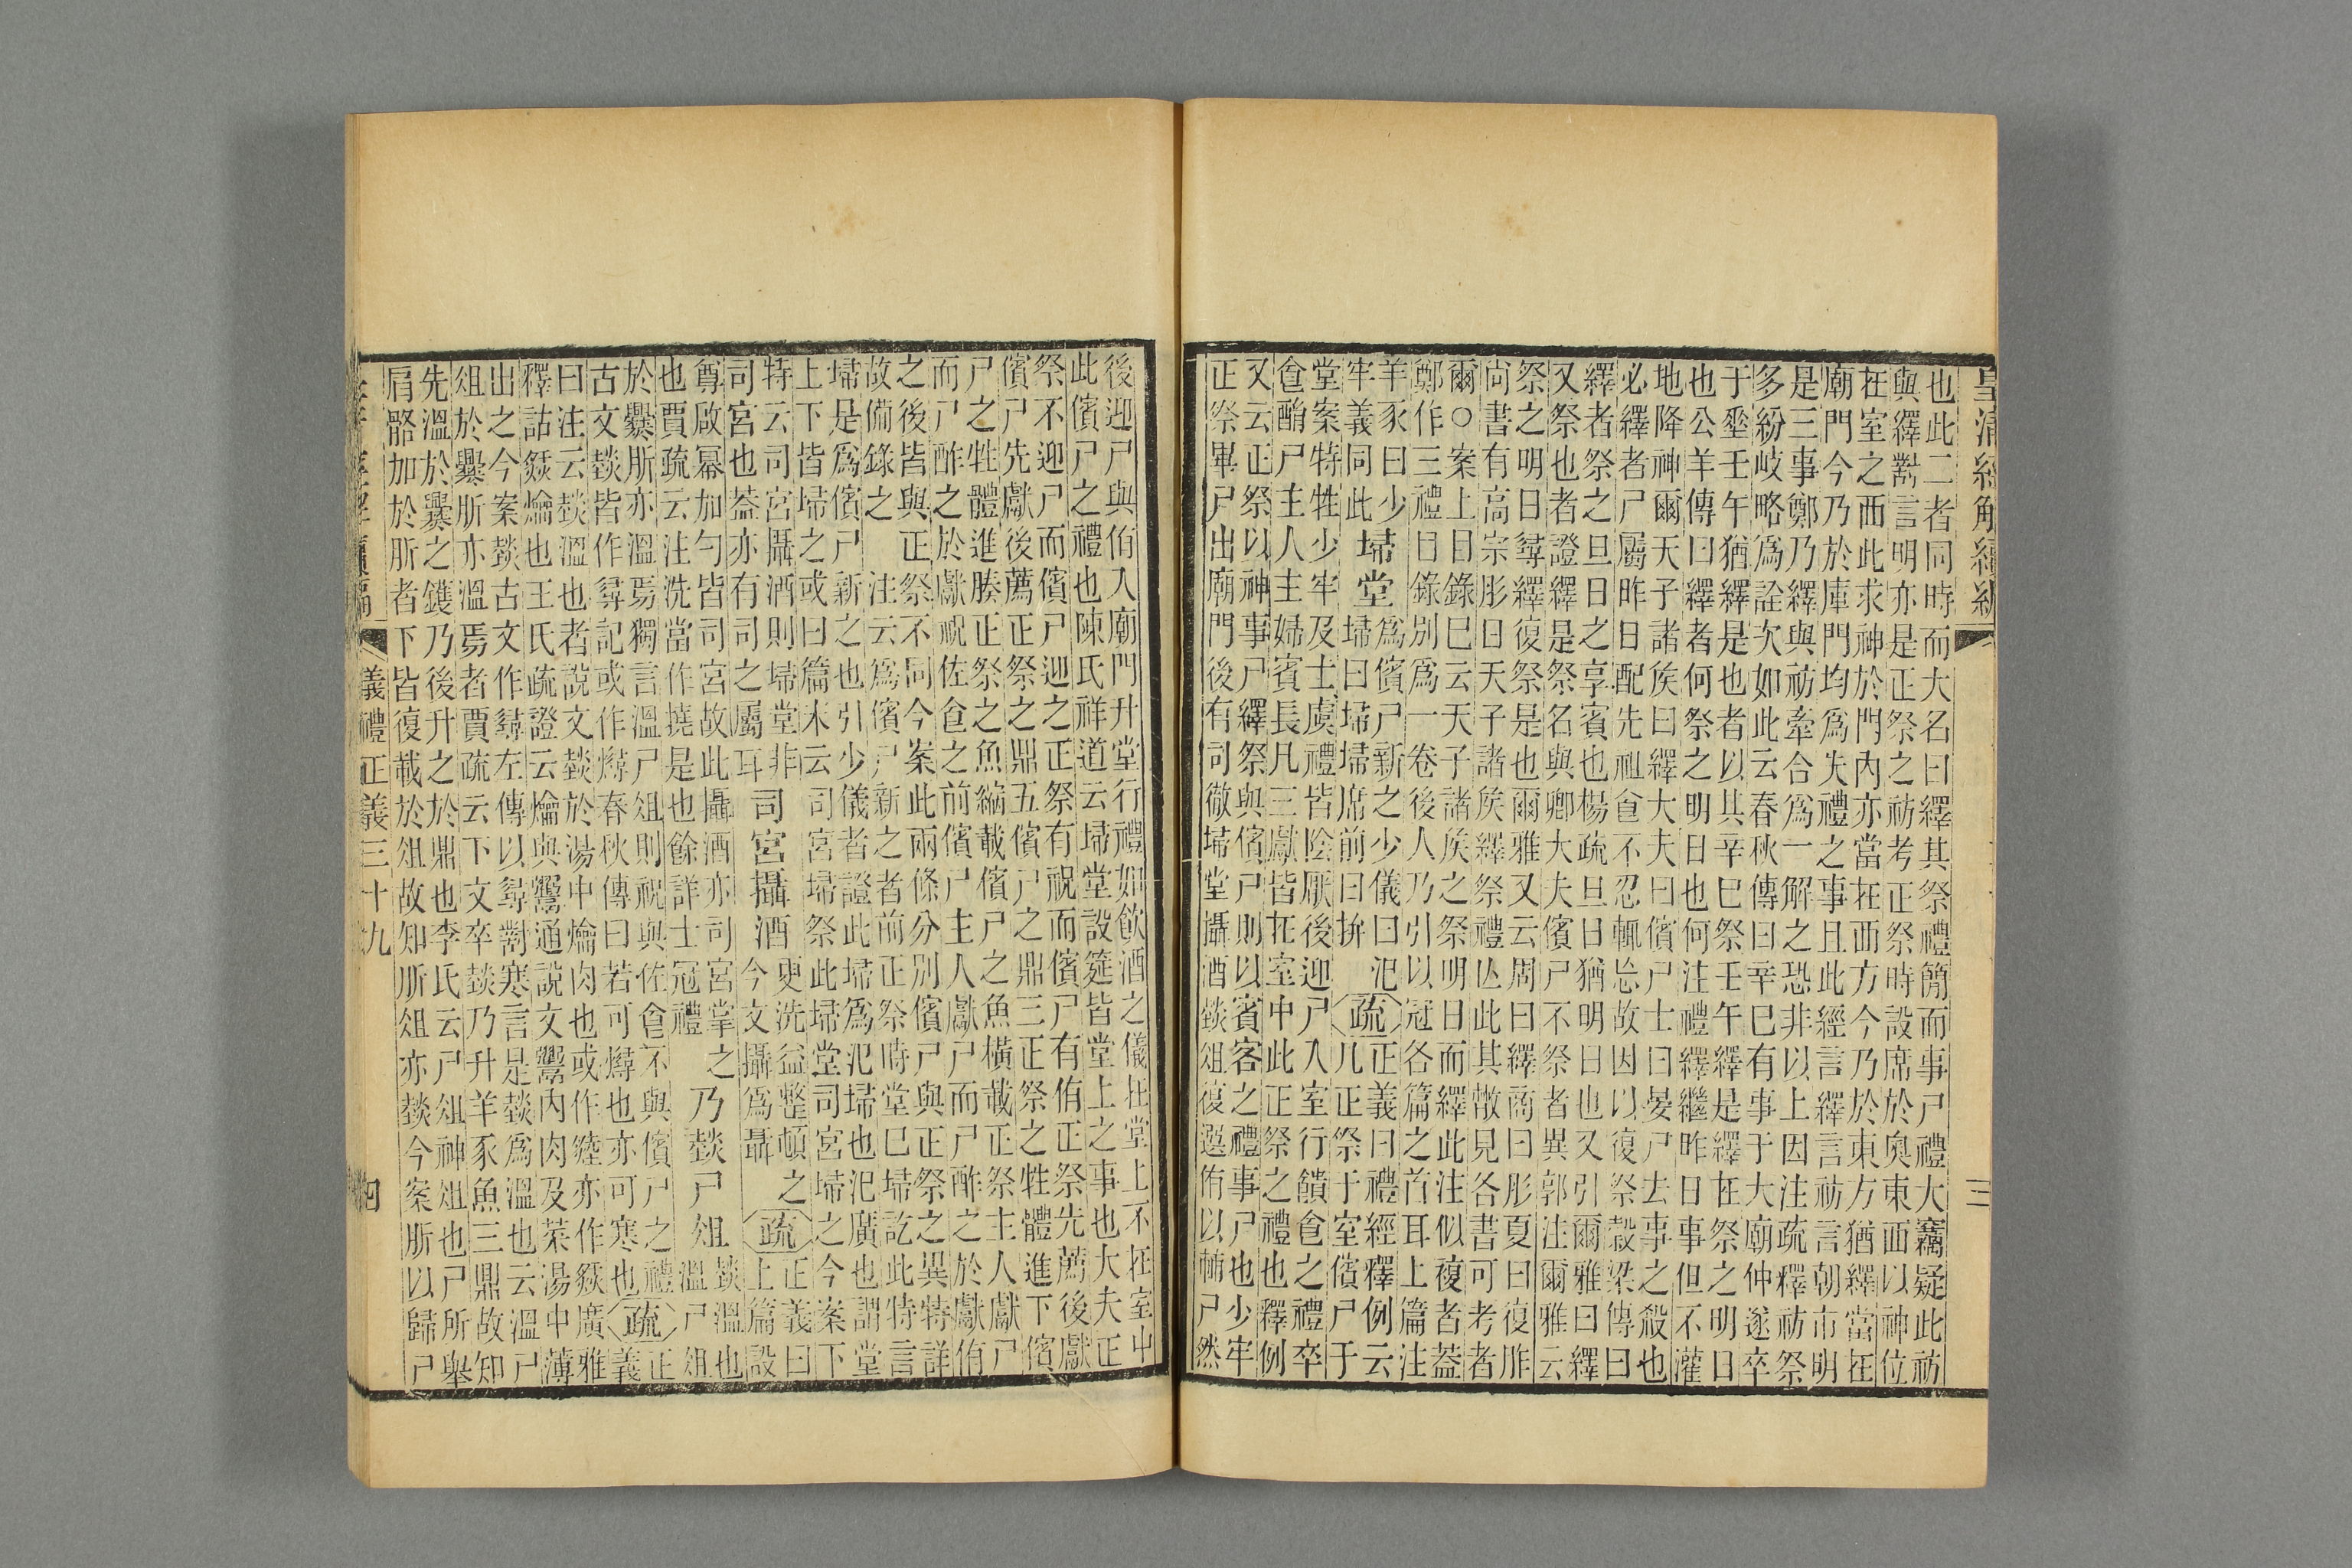 皇清經解續編
三
也此二者同時而大名曰繹其祭禮簡而事尸禮大竊疑此祊
與繹對言明亦是正祭之祊考正祭時設席於奧東面以神位
在室之西此求神於門內亦當在西方今乃於東方猶繹當在
廟門今乃於庫門均爲失禮之事且此經言繹言祊言朝市明
是三事鄭乃繹與祊牽合爲一解之恐非以上因注疏釋祊祭
多紛岐略爲詮次如此云春秋傳曰辛巳有事于大廟仲遂卒
于垂壬午猶繹是也者以其辛巳祭壬午繹是繹在祭之明日
也公羊傳曰繹者何祭之明日也何注禮繹繼昨日事但不灌
地降神爾天子諸矦曰繹大夫曰儐尸士曰宴尸去事之殺也
必繹者尸屬昨日配先祖食不忍輒忘故因以復祭穀梁傳曰
繹者祭之旦日之享賓也楊疏旦日猶明日也又引爾雅曰繹
又祭也者證繹是祭名與卿大夫儐尸不祭者異郭注爾雅云
祭之明日尋繹復祭是也爾雅又云周曰繹商曰肜夏曰復胙
尚書有高宗肜日天子諸矦繹祭禮亾此其散見各書可考者
爾○案上目錄已云天子諸矦之祭明日而繹此注似複者蓋
鄭作三禮目錄別爲一卷後人乃引以冠各篇之首耳上篇注
羊豕曰少
牢義同此
埽堂
爲儐尸新之少儀曰汜
埽曰埽埽席前曰拚
疏
正義曰禮經釋例云
凡正祭于室儐尸于
堂案特牲少牢及士虞禮皆陰厭後迎尸入室行饋食之禮卒
食酳尸主人主婦賓長凡三獻皆在室中此正祭之禮也釋例
又云正祭以神事尸繹祭與儐尸則以賓客之禮事尸也少牢
正祭畢尸出廟門後有司徹埽堂攝酒燅俎復選侑以輔尸然
後迎尸與侑入廟門升堂行禮如飲酒之儀在堂上不在室中
此儐尸之禮也陳氏祥道云埽堂設筵皆堂上之事也大夫正
祭不迎尸而儐尸迎之正祭有祝而儐尸有侑正祭先薦後獻
儐尸先獻後薦正祭之鼎五儐尸之鼎三正祭之牲體進下儐
尸之牲體進腠正祭之魚縮載儐尸之魚橫載正祭主人獻尸
而尸酢之於獻祝佐食之前儐尸主人獻尸而尸酢之於獻侑
之後皆與正祭不同今案此兩條分別儐尸與正祭之異特詳
故備錄之 注云爲儐尸新之者前正祭時堂已埽訖此特言
埽是爲儐尸新之也引少儀者證此埽爲汜埽也汜廣也謂堂
上下皆埽之或曰篇末云司宮埽祭此埽堂司宮埽之今案下
特云司宮攝酒則埽堂非
司宮也葢亦有司之屬耳
司宮攝酒
更洗益整頓之
今文攝爲聶
疏
正義曰
上篇設
尊啟冪加勺皆司宮故此攝酒亦司宮掌之
也賈疏云注洗當作撓是也餘詳士冠禮
乃燅尸俎
燅溫也
溫尸俎
於爨肵亦溫焉獨言溫尸俎則祝與佐食不與儐尸之禮
古文燅皆作尋記或作燖春秋傳曰若可燖也亦可寒也
疏
正
義
曰注云燅溫也者說文燅於湯中爚肉也或作亦作㷟廣雅
釋詁㷟爚也王氏疏證云爚與鬻通說文鬻內肉及菜湯中薄
出之今案燅古文作尋左傳以尋對寒言是燅爲溫也云溫尸
俎於爨肵亦溫焉者賈疏云下文卒燅乃升羊豕魚三鼎故知
先溫於爨之鑊乃後升之於鼎也李氏云尸俎神俎也尸所舉
肩骼加於肵者下皆復載於俎故知肵俎亦燅今案肵以歸尸
儀禮正義三十九
四